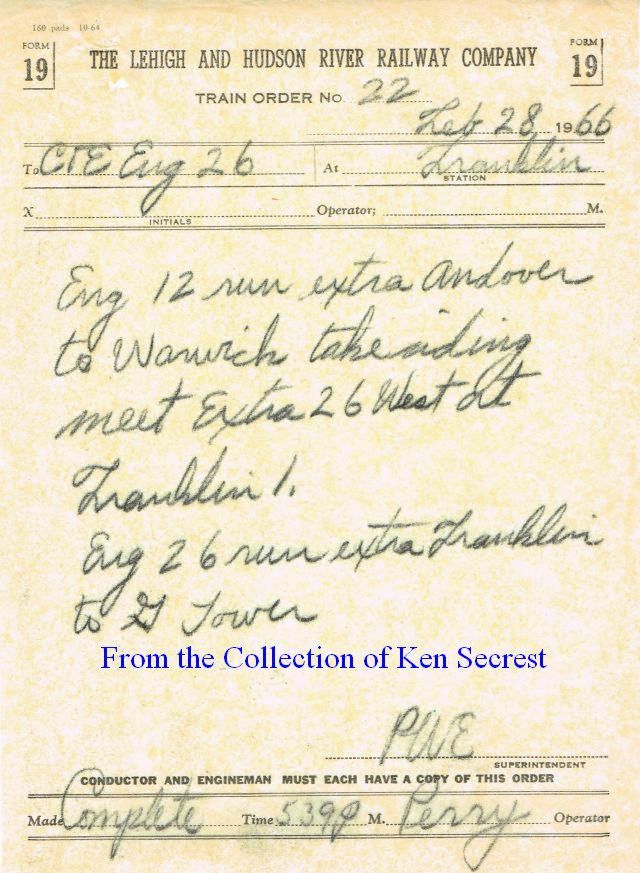 160 pads 10-64
FORM 19 THE LEHIGH AND HUDSON RIVER RAILWAY COMPANY FORM 19
TRAIN ORDER No. 22
Feb 28 1966
To C&E Eng 26 At Franklin
STATION
X INITIALS Operator; M.
Eng 12 run extra Andover
to Warwick take siding
meet Extra 26 West at
Franklin 1.
Eng 26 run extra Franklin
to G Tower
From the Collection of Ken Secrest
PWE
SUPERINTENDENT
CONDUCTOR AND ENGINEMAN MUST EACH HAVE A COPY OF THIS ORDER
Made Complete Time 539P M. Perry Operator